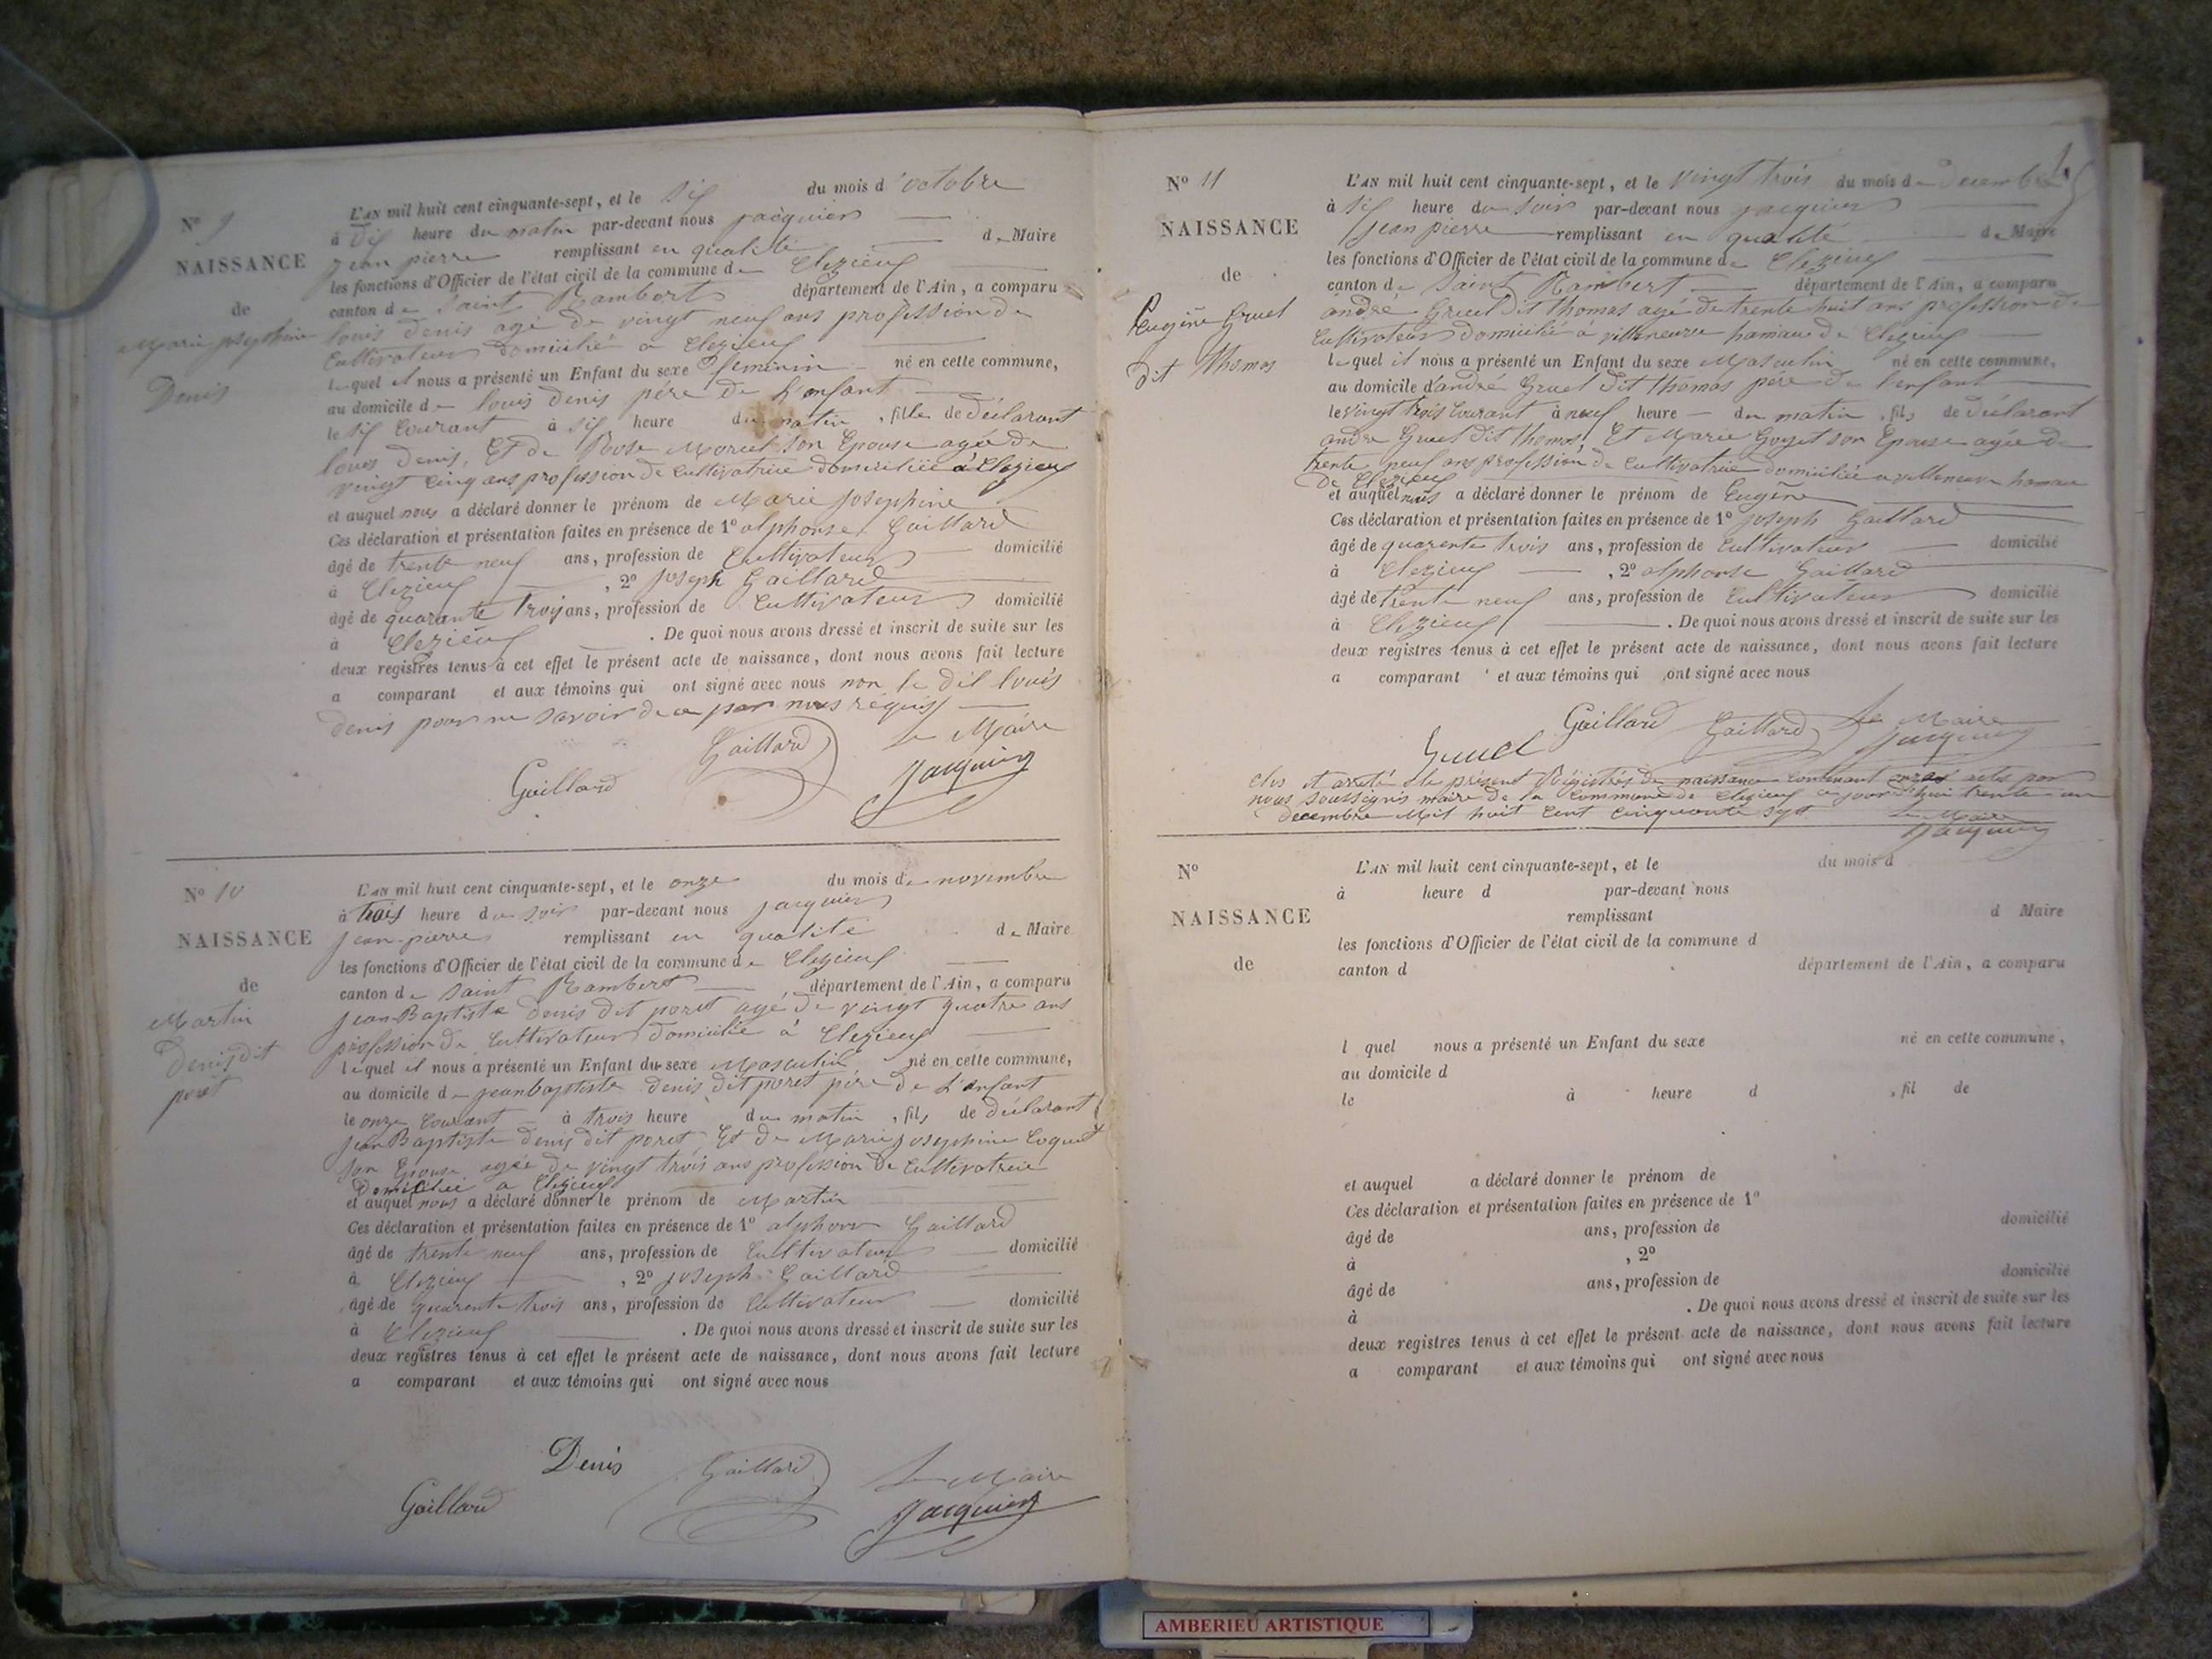 N° 9
NAISSANCE
de
Marie josephine
Denis
L'AN mil huit cent cinquante-sept, et le six du mois d'octobre
à dix heure du matin par-devant nous jacquier
jean pierre remplissant en qualité de Maire
les fonctions d'Officier de l'état civil de la commune de Clezieux
canton de Saint Rambert département de l'Ain, a comparu
louis denis agé de vingt neuf ans profession de
Cultivateur domicilié a Clezieux
lequel il nous a présenté un Enfant du sexe feminin né en cette commune,
au domicile de louis denis père de l'enfant
le six Courant à six heure du matin, fille de déclarant
louis denis, Et de Rose Morcel son Epouse agée de
vingt cinq ans profession de Cultivatrice domiciliée à Clezieux
et auquel nous a déclaré donner le prénom de Marie josephine
Ces déclaration et présentation faites en présence de 1° alphonse Gaillard
âgé de trente neuf ans, profession de Cultivateur domicilié
à Clezieux, 2° joseph Gaillard
âgé de quarante trois ans, profession de Cultivateur domicilié
à Clezieux. De quoi nous avons dressé et inscrit de suite sur les
deux registres tenus à cet effet le présent acte de naissance, dont nous avons fait lecture
a comparant et aux témoins qui ont signé avec nous non le dit louis
denis pour ne savoir de ce par nous requis
Gaillard Gaillard Le Maire
Jacquier
N° 10
NAISSANCE
de
Martin
Denis dit
poret
L'AN mil huit cent cinquante-sept, et le onze du mois de novembre
à trois heure du soir par-devant nous jacquier
jean-pierre remplissant en qualité de Maire
les fonctions d'Officier de l'état civil de la commune de Clezieux
canton de Saint Rambert département de l'Ain, a comparu
jean Baptiste denis dit poret agé de vingt quatre ans
profession de Cultivateur domicilié à Clezieux
lequel il nous a présenté un Enfant du sexe Masculin né en cette commune,
au domicile de jean baptiste denis dit poret père de l'enfant
le onze Courant à trois heure du matin, fils de déclarant
jean Baptiste denis dit poret Et de Marie josephine Coquet
son Epouse agée de vingt trois ans profession de Cultivatrice
Domiciliée a Clezieux
et auquel nous a déclaré donner le prénom de Martin
Ces déclaration et présentation faites en présence de 1° alphonse Gaillard
âgé de trente neuf ans, profession de Cultivateur domicilié
à Clezieux, 2° joseph Gaillard
âgé de quarente trois ans, profession de Cultivateur domicilié
à Clezieux. De quoi nous avons dressé et inscrit de suite sur les
deux registres tenus à cet effet le présent acte de naissance, dont nous avons fait lecture
a comparant et aux témoins qui ont signé avec nous
Denis Gaillard Le Maire
Gaillard Jacquier
N° 11
NAISSANCE
de
Eugène Gruel
dit thomas
L'AN mil huit cent cinquante-sept, et le vingt trois du mois de décembre
à six heure du soir par-devant nous jacquier
jean pierre remplissant en qualité de Maire
les fonctions d'Officier de l'état civil de la commune de Clezieux
canton de Saint Rambert département de l'Ain, a comparu
andré Gruel dit thomas agé de trente huit ans profession de
Cultivateur domicilié à villeneuve hamau de Clezieux
lequel il nous a présenté un Enfant du sexe Masculin né en cette commune,
au domicile d'andré Gruel dit thomas père de l'enfant
le vingt trois Courant à neuf heure du matin, fils de déclarant
andre Gruel dit thomas Et Marie Goyet son Epouse agée de
trente neuf ans profession de Cultivatrice domiciliée a villeneuve hamau
de Clezieux
et auquel nous a déclaré donner le prénom de Eugène
Ces déclaration et présentation faites en présence de 1° joseph Gaillard
âgé de quarente trois ans, profession de Cultivateur domicilié
à Clezieux, 2° alphonse Gaillard
âgé de trente neuf ans, profession de Cultivateur domicilié
à Clezieux. De quoi nous avons dressé et inscrit de suite sur les
deux registres tenus à cet effet le présent acte de naissance, dont nous avons fait lecture
a comparant et aux témoins qui ont signé avec nous
Gruel Gaillard Gaillard Le Maire
Jacquier
Clos et arreté le présent Régistrés de naissance Contenant onze actes par
nous soussignés maire de la Commune de Clezieux ce jour d'hui trente un
decembre Mil huit Cent Cinquante sept Le Maire
Jacquier
N°
NAISSANCE
de
L'AN mil huit cent cinquante-sept, et le du mois d
à heure d par-devant nous
remplissant d Maire
les fonctions d'Officier de l'état civil de la commune d
canton d département de l'Ain, a comparu
l quel nous a présenté un Enfant du sexe né en cette commune,
au domicile d
le à heure d, fil de
et auquel a déclaré donner le prénom de
Ces déclaration et présentation faites en présence de 1°
âgé de ans, profession de domicilié
à, 2°
âgé de ans, profession de domicilié
à. De quoi nous avons dressé et inscrit de suite sur les
deux registres tenus à cet effet le présent acte de naissance, dont nous avons fait lecture
a comparant et aux témoins qui ont signé avec nous
AMBERIEU ARTISTIQUE